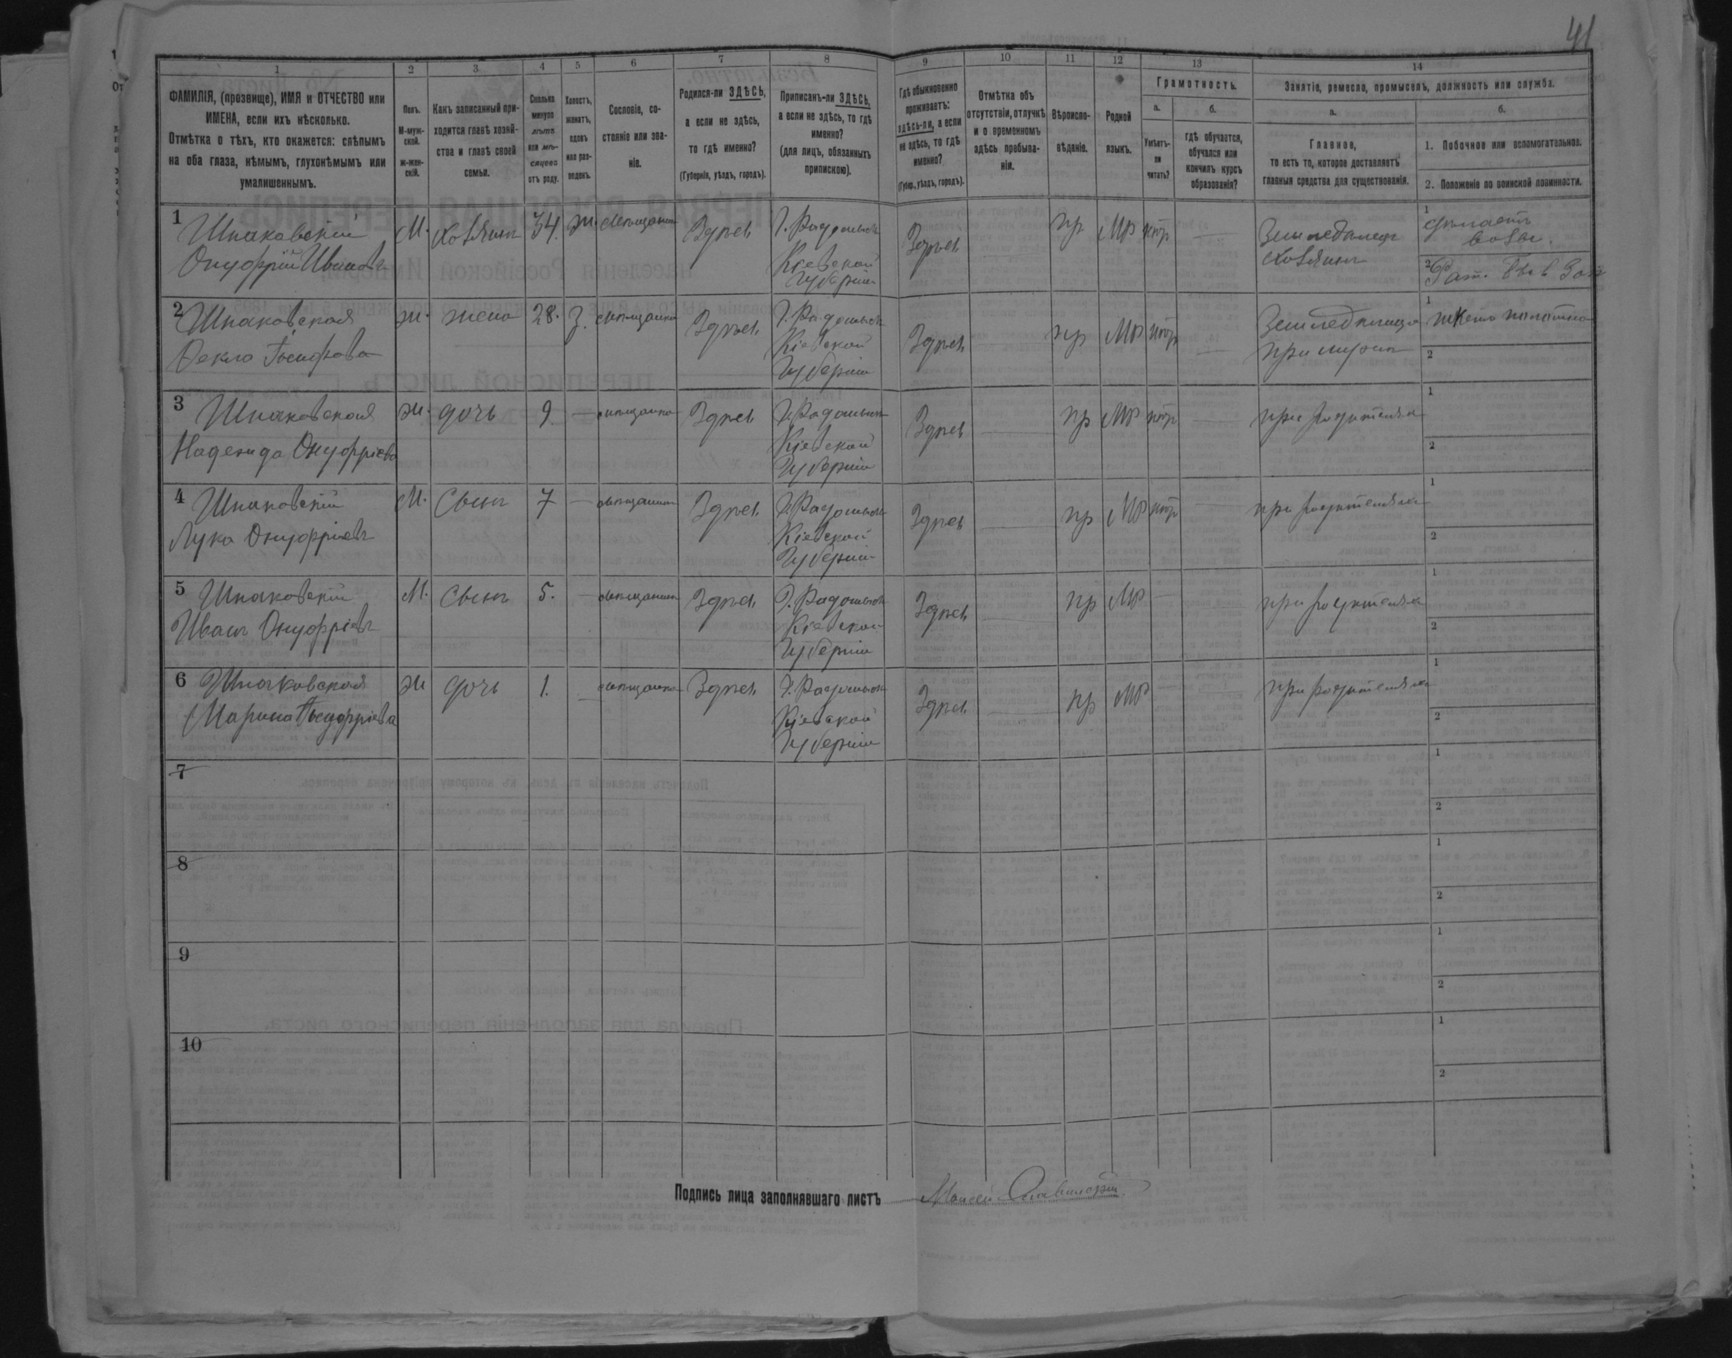 41
1 2 3 4 5 6 7 8 9 10 11 12 13 14
ФАМИЛІЯ, (прозвище), ИМЯ и ОТЧЕСТВО или
ИМЕНА, если ихъ нѣсколько.
Отмѣтка о тѣхъ, кто окажется: слѣпымъ
на оба глаза, нѣмымъ, глухонѣмымъ или
умалишеннымъ.
Полъ.
М-муж-
ской.
ж-жен-
скій.
Какъ записанный при-
ходится главѣ хозяй-
ства и главѣ своей
семьи.
Сколько
минуло
лѣтъ
или мѣ-
сяцевъ
отъ роду.
Холостъ,
женатъ,
вдовъ
или раз-
веденъ.
Сословіе, со-
стояніе или зва-
ніе.
Родился-ли ЗДѢСЬ,
а если не здѣсь,
то гдѣ именно?
(Губернія, уѣздъ, городъ).
Приписанъ-ли ЗДѢСЬ,
а если не здѣсь, то гдѣ
именно?
(для лицъ, обязанныхъ
припискою).
Гдѣ обыкновенно
проживаетъ:
здѣсь-ли, а если
не здѣсь, то гдѣ
именно?
(Губер., уѣздъ, городъ).
Отмѣтка объ
отсутствіи, отлучкѣ
и о временномъ
здѣсь пребыва-
ніи.
Вѣроиспо-
вѣданіе.
Родной
языкъ.
Грамотность.
а.
Умѣетъ-
ли
читать?
б.
гдѣ обучается,
обучался или
кончилъ курсъ
образованія?
Занятіе, ремесло, промыселъ, должность или служба.
а.
Главное,
то есть то, которое доставляетъ
главныя средства для существованія.
б.
1. Побочное или вспомогательное.
2. Положеніе по воинской повинности.
1 Шпаковскій М. хозяинъ 34 ж. мѣщанинъ Здѣсь Г. Радомысль Здѣсь пр МР нтр Земледѣлецъ 1 дѣлаетъ
Онуфрій Ивановъ Кіевской хозяинъ возы.
Губерніи 2
2 Шпаковская ж. жена 28. З. мѣщанка Здѣсь Г. Радомысль Здѣсь пр МР нтр Земледѣлица 1 ткетъ полотно
Фекла Іосифова Кіевской при мужѣ
Губерніи 2
3 Шпаковская ж. дочь 9 мѣщанка Здѣсь Г. Радомысль Здѣсь пр МР нтр при родителях 1
Надежда Онуфріева Кіевской
Губерніи 2
4 Шпаковскій М. Сынъ 7 мѣщанинъ Здѣсь Г. Радомысль Здѣсь пр МР нтр при родителях 1
Лука Онуфріевъ Кіевской
Губерніи 2
5 Шпаковскій М. Сынъ 5. мѣщанинъ Здѣсь Г. Радомысль Здѣсь пр МР при родителях 1
Иванъ Онуфріевъ Кіевской
Губерніи 2
6 Шпаковская ж дочь 1. мѣщанка Здѣсь Г. Радомысль Здѣсь пр МР при родителях 1
Марина Онуфріева Кіевской
Губерніи 2
7 1
2
8 1
2
9 1
2
10 1
2
Подпись лица заполнявшаго листъ Моисей